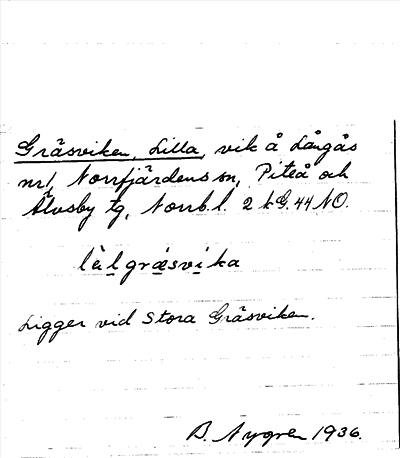 Gräsviken, Lilla, vik å Långås
nr 1, Norrfjärdens sn, Piteå och
Älvsby tg, Norrb. l. 2 kG. 44 NO.
lìl gräsvika
Ligger vid Stora Gräsviken.
B. Nygren 1936.